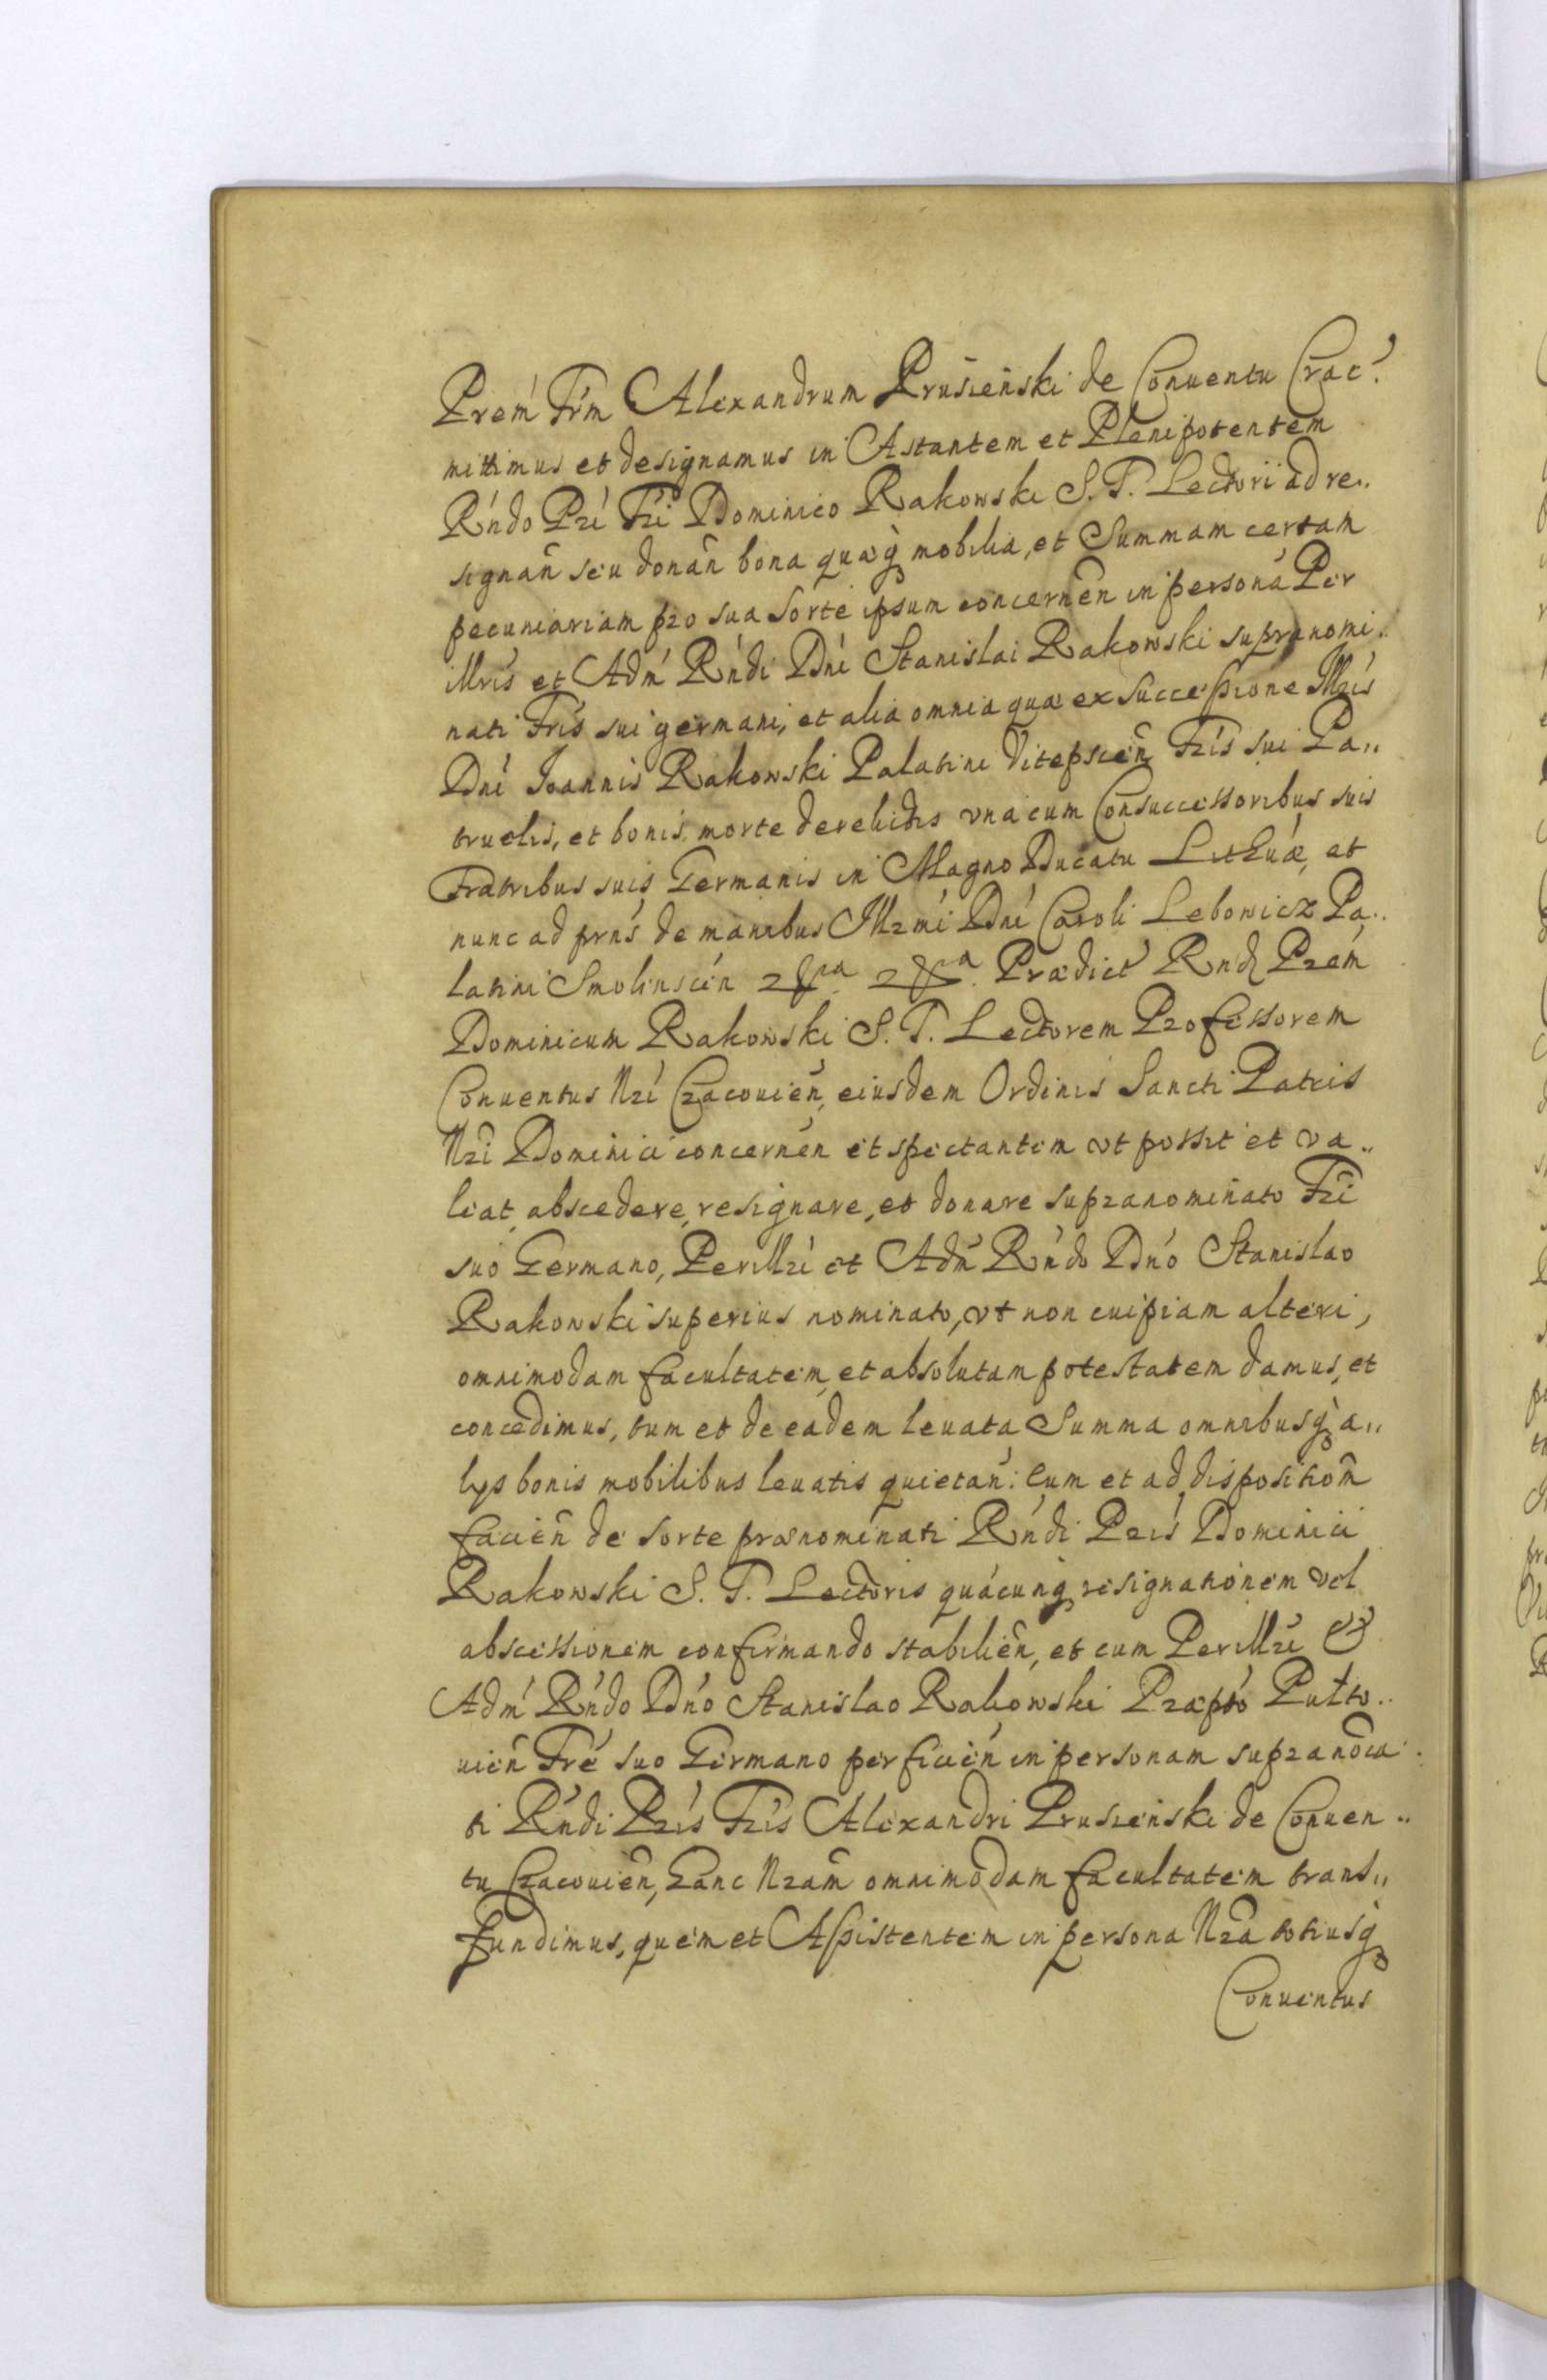 Prem Frm Alexandrum Prusieński de Conuentu Crac:
mittimus et designamus in Astantem et Plenipotentem
Rńdo Pri Fri Dominico Rakowski S. T. Lectori ad re..
signan̄ seu donan̄ bona quæq̨ mobilia, et Summam certam
pecuniariam pro sua Sorte ipsum concernen̄ in persona Per
illris et Adm̄ Rńdi Dni Stanislai Rakowski supranomi..
nati Fris sui germani, et alia omnia quæ ex successione Illris
Dni Ioannis Rakowski Palatini Vitepscen̄ Fris sui Pa,,
truelis, et bonis morte derelictis vna cum Consuccessoribus suis
Fratribus suis Germanis in Magno Ducatu Lithuæ, et
nunc ad prns de manibus Illrmi Dni Caroli Lebowicz Pa..
latini Smolinscen̄ Prædict Rnd Prem
Dominicum Rakowski S. T. Lectorem Professorem
Conuentus Nri Cracouien̄, eiusdem Ordinis Sancti Patris
Nri Dominici concernen̄ et spectantem vt possit et va..
leat abscedere, resignare, et donare supranominato Fri
suo Germano, Perillri et Adm̄ Rńdo Dno Stanislao
Rakowski superius nominato, vt non cuipiam alteri,
omnimodam facultatem, et absolutam potestatem damus, et
concedimus, tum et de eadem leuata Summa omnibusq̨ a,,
lys bonis mobilibus leuatis quietan̄: Cum et ad dispositiom̄
facien̄ de sorte prænominati Rńdi Pris Dominici
Rakowski S. T. Lectoris quácunq̨ resignationem vel
abscessionem confirmando stabilien̄, et cum Perillri &
Adm̄ Rńdo Dno Stanislao Rakowski Præpto Pułto..
uien̄ Fre suo Germano perficien̄ in personam supranoĩa
ti Rńdi Pris Fris Alexandri Prusieński de Conuen..
tu Cracouien̄, hanc Nram omnimodam facultatem trans,,
fundimus, quem et Assistentem in persona Nra totiusq̨
Conuentus